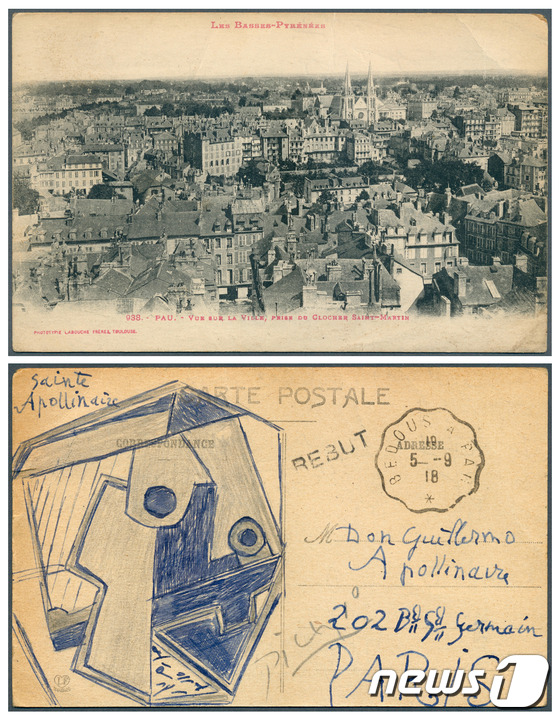 LES BASSES-PYRÉNÉES
938. - PAU. - VUE SUR LA VILLE, PRISE DU CLOCHER SAINT-MARTIN
PHOTOTYPIE LABOUCHE FRÈRES, TOULOUSE.
Sainte
Apollinaire
CARTE POSTALE
CORRESPONDANCE
REBUT
BEDOUS A PAU
ADRESSE
18
5 - 9
18
*
M Don Guillermo
Apollinaire
202 Bd St Germain
PARIS
Picasso
news1